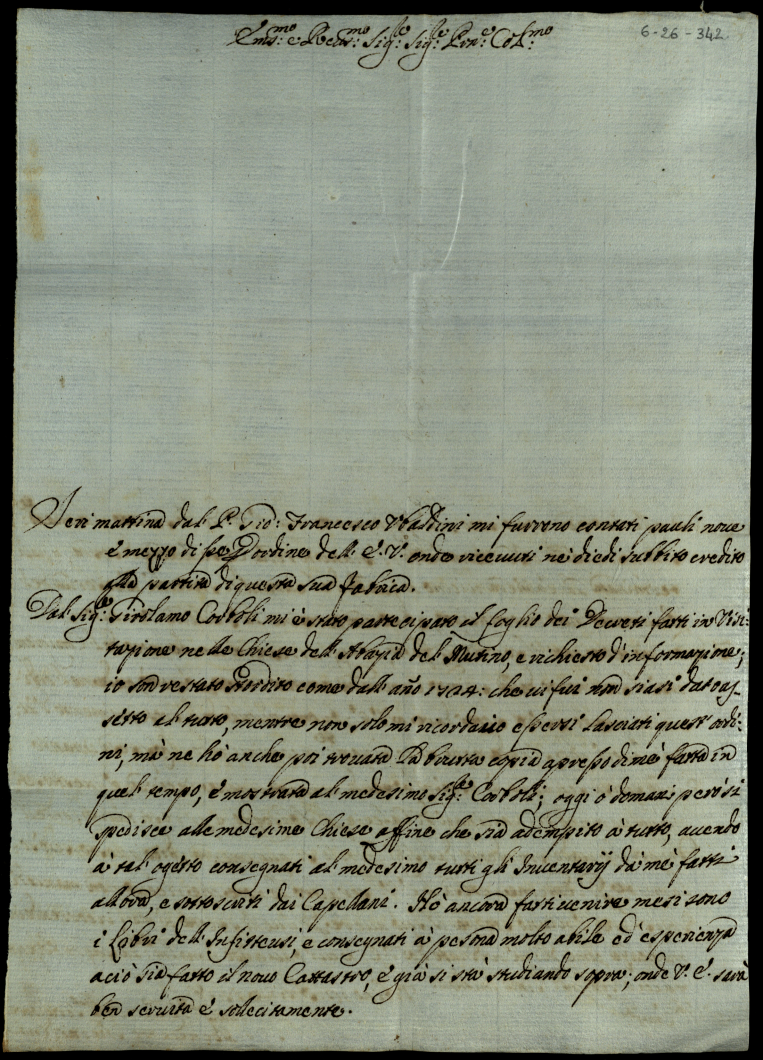 6-26-342
Em:mo e Rev:mo Sig:re Sig:re Pron:e Col:mo
Ieri mattina dal P. Gio: Francesco Ubaldini mi furrono contati pauli nove
e mezzo di ordine dell' E. V. onde ricevuti ne diedi subbito credito
alla partita di questa sua fabrica.
Dal Sig:re Girolamo Corboli mi è stato partecipato il foglio dei Decreti fatti in Visi:
tazione nelle Chiese dell' Abazia del Mutino, e richiesto d'informazione;
io son restato stordito come dall' año 1724: che ui fui non siasi dato as,
setto al tutto, mentre non solo mi ricordavo essersi lasciati quest' ordi:
ni, mà ne hò anche poi trouata la brutta copia apresso di mè fatta in
quel tempo, é mostrata al medesimo Sig:re Corboli; oggi ò domani però si
spedisce alle medesime Chiese affine che sia adempito à tutto, auendo
à tal ogetto consegnati al medesimo tutti gli Inuentarij da mè fatti
allora, e sottoscritti dai Capellani. Hò ancora fatti uenire mesi sono
i Libri dell' Infiteusi, e consegnati à persona molto abile ed' esperienza
aciò sia fatto il nouo Cattastro, é già si stà studiando sopra; onde V. E. sarà
ben seruita é sollecitamente.